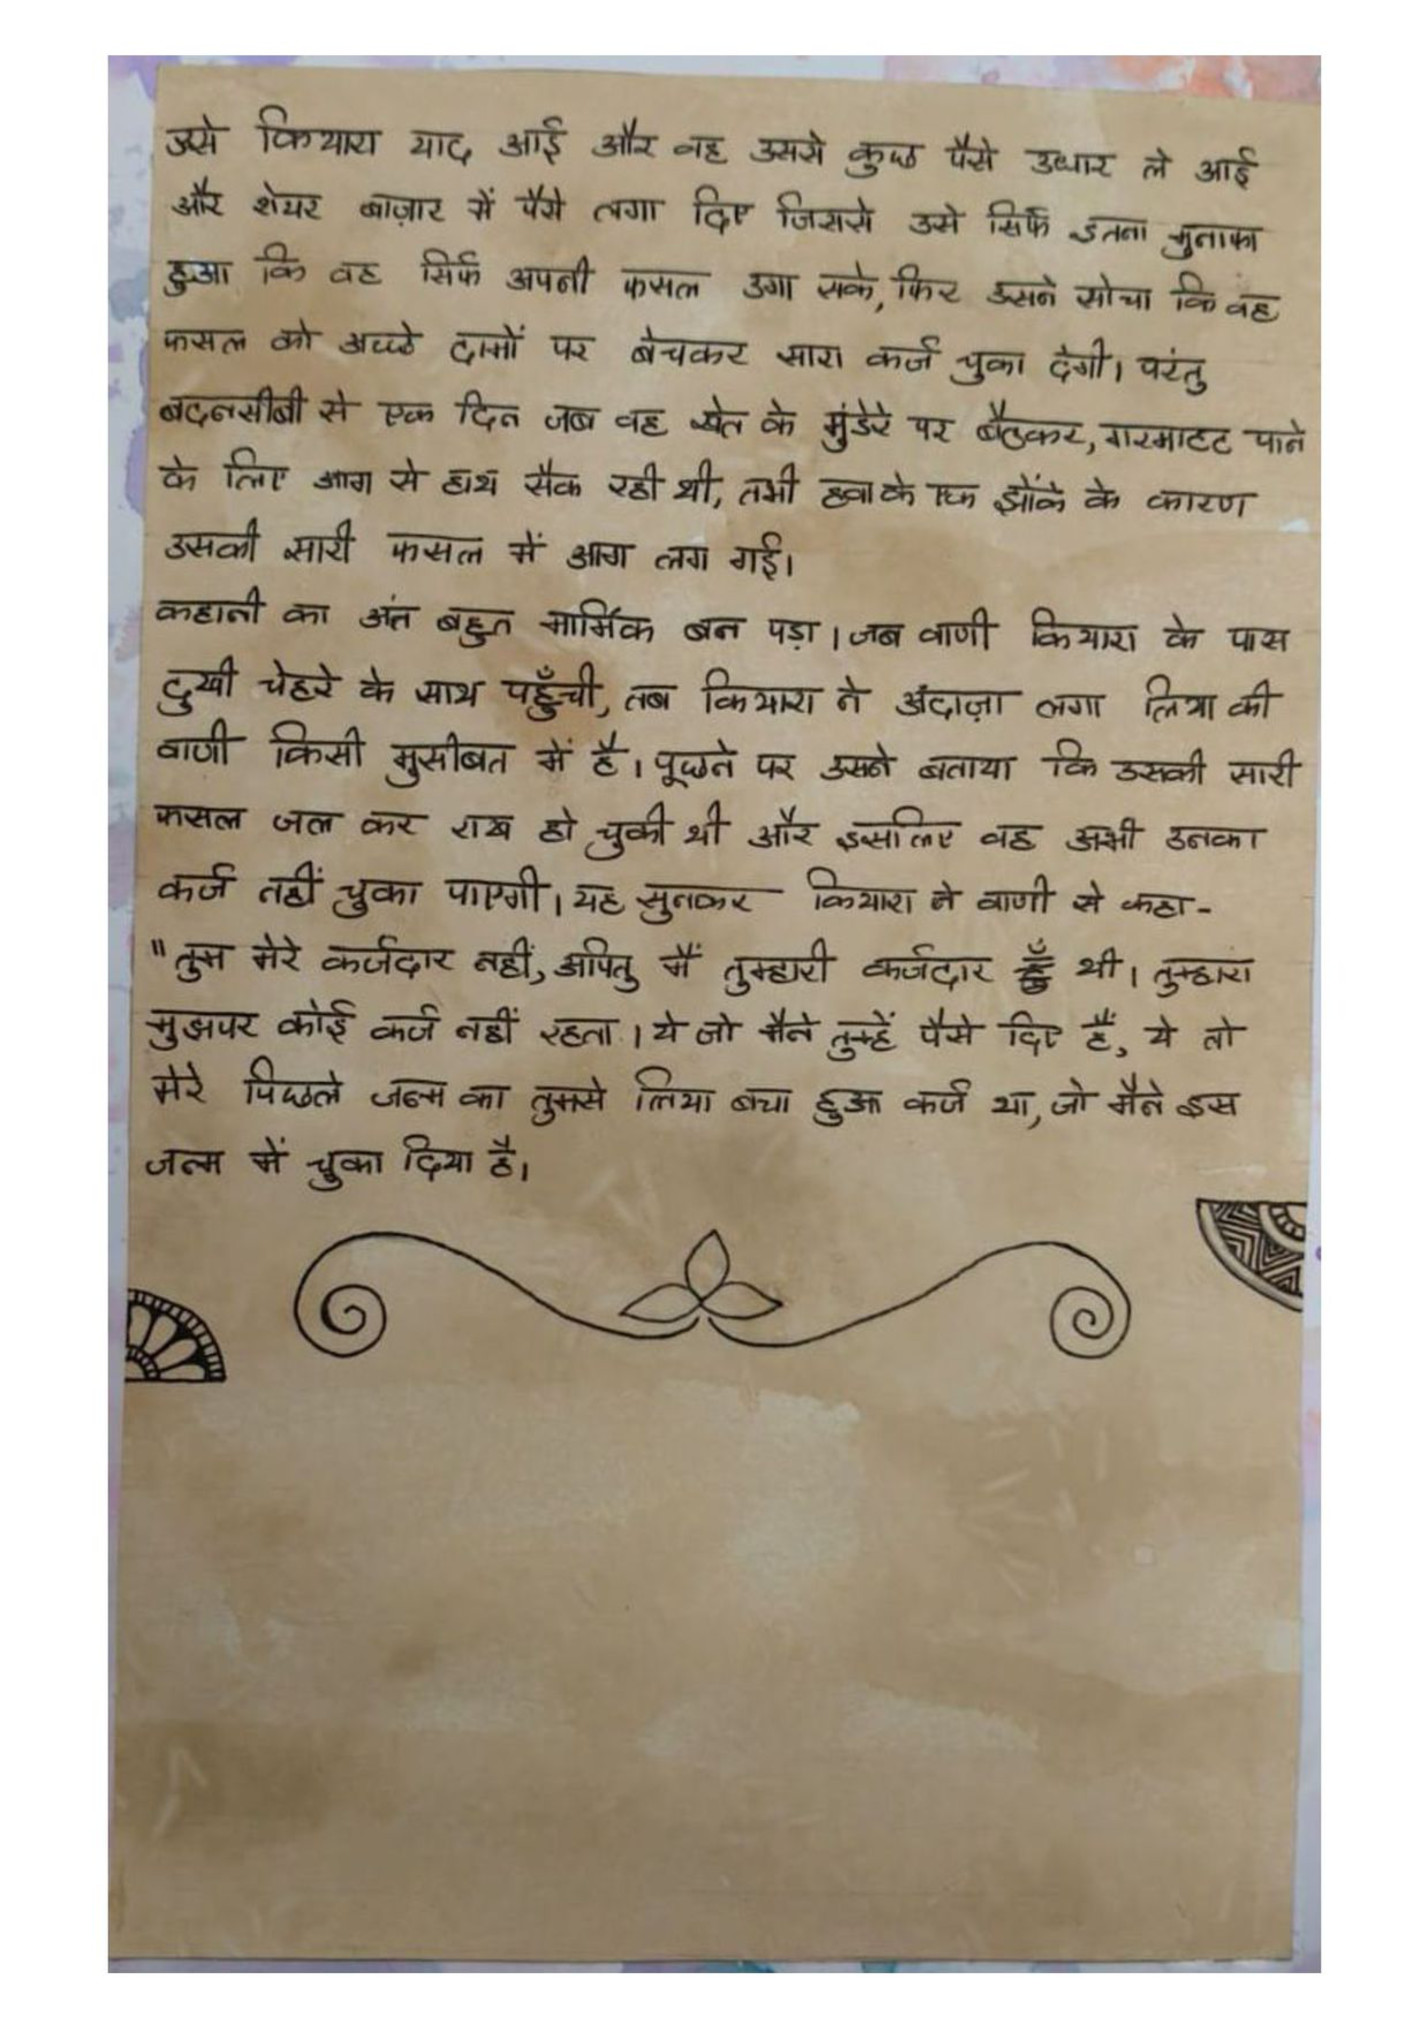 उसे कियारा याद आई और वह उससे कुछ पैसे उधार ले आई
और शेयर बाज़ार में पैसे लगा दिए जिससे उसे सिर्फ इतना मुनाफा
हुआ कि वह सिर्फ अपनी फसल उगा सके, फिर उसने सोचा कि वह
फसल को अच्छे दामों पर बेचकर सारा कर्ज चुका देगी। परंतु
बदनसीबी से एक दिन जब वह खेत के मुंडेरे पर बैठकर, गरमाहट पाने
के लिए आग से हाथ सैक रही थी, तभी हवा के एक झौंके के कारण
उसकी सारी फसल में आग लग गई।
कहानी का अंत बहुत मार्मिक बन पड़ा। जब वाणी कियारा के पास
दुखी चेहरे के साथ पहुँची, तब कियारा ने अंदाज़ा लगा लिया की
वाणी किसी मुसीबत में है। पूछने पर उसने बताया कि उसकी सारी
फसल जल कर राख हो चुकी थी और इसलिए वह अभी उनका
कर्ज नहीं चुका पाएगी। यह सुनकर कियारा ने वाणी से कहा-
"तुम मेरे कर्जदार नहीं, अपितु मैं तुम्हारी कर्जदार थी। तुम्हारा
मुझपर कोई कर्ज नहीं रहता। ये जो मैने तुम्हें पैसे दिए हैं, ये तो
मेरे पिछले जन्म का तुमसे लिया बचा हुआ कर्ज था, जो मैने इस
जन्म में चुका दिया है।